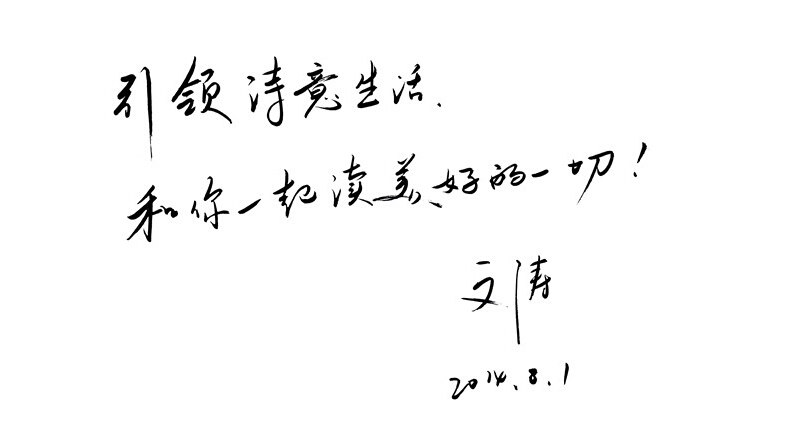 引领诗意生活.
和你一起读美好的一切!
文涛
2014.8.1